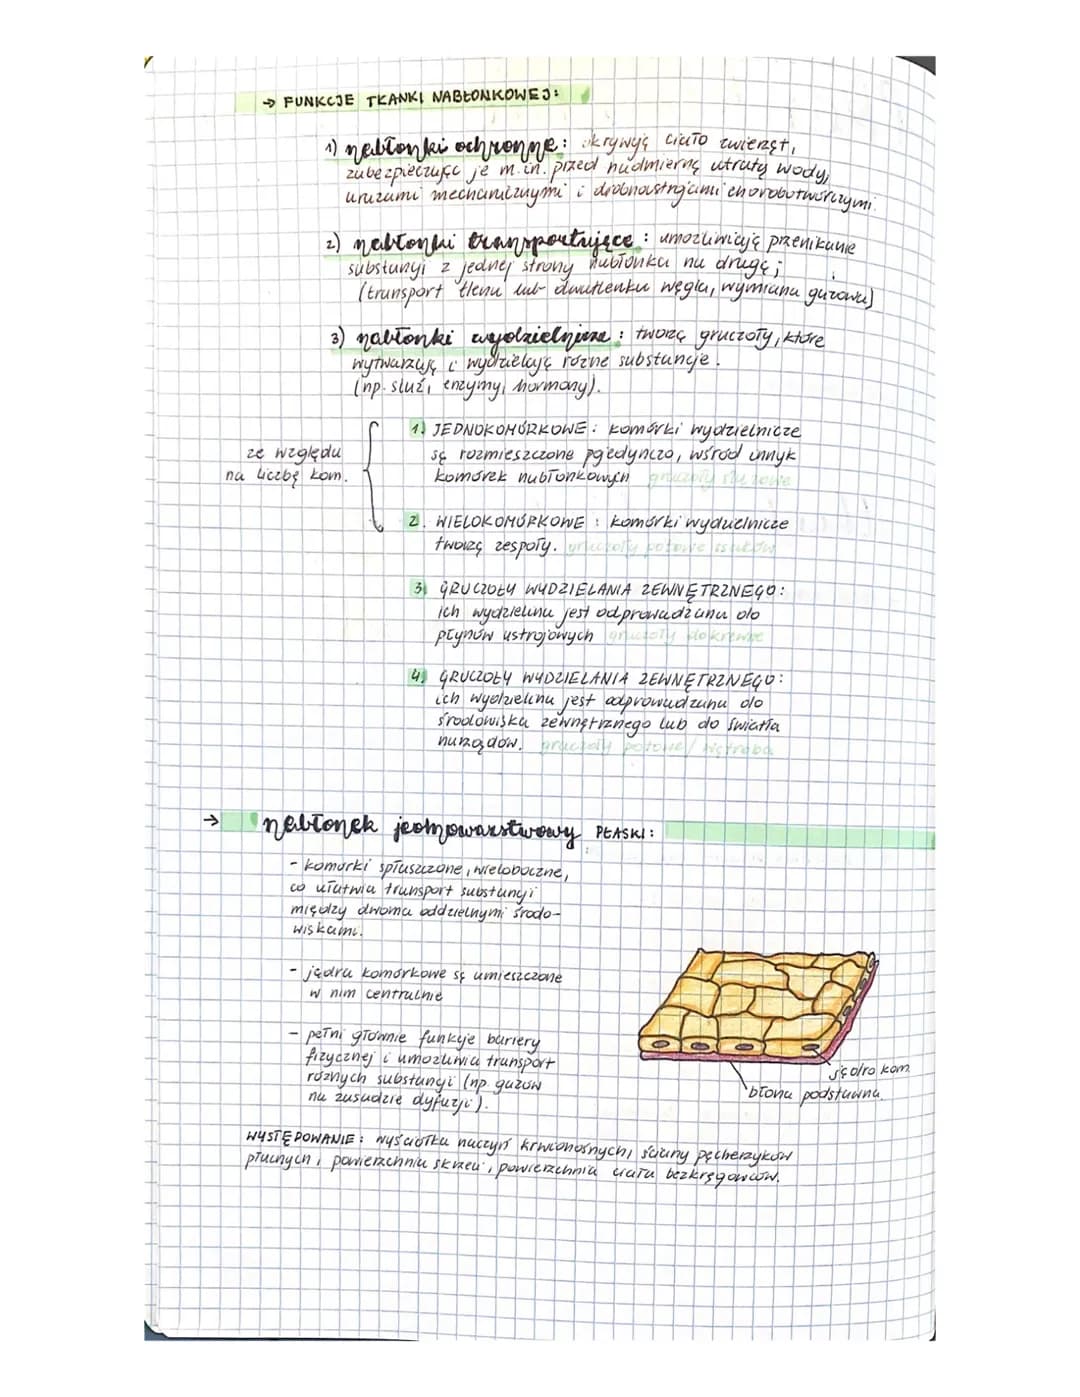 → FUNKCJE TKANKI NABŁONKOWEJ:
1) nabłonki ochronne: okrywają ciało zwierząt,
zabezpieczając je m.in. przed nadmierną utratą wody,
urazami mechanicznymi i drobnoustrojami chorobotwórczymi.
2) nabłonki transportujące: umożliwiają przenikanie
substancji z jednej strony nabłonka na drugą;
(transport tlenu lub dwutlenku węgla, wymiana gazowa)
3) nabłonki wydzielnicze: tworzą gruczoły, które
wytwarzają i wydzielają różne substancje.
(np. śluź, enzymy, hormony).
ze względu
na liczbę kom.
1. JEDNOKOMÓRKOWE: komórki wydzielnicze
są rozmieszczone pojedynczo, wśród innyk
komórek nabłonkowych gruczoły śluzowe
2. WIELOKOMÓRKOWE: komórki wydzielnicze
tworzą zespoły. gruczoły potowe ssaków
3. GRUCZOŁY WYDZIELANIA ZEWNĘTRZNEGO:
ich wydzielina jest odprowadzana do
płynów ustrojowych gruczoły dokrewne
4. GRUCZOŁY WYDZIELANIA ZEWNĘTRZNEGO:
ich wydzielina jest odprowadzana do
środowiska zewnętrznego lub do światła
narządów. gruczoły potowe/wątroba
→ nabłonek jednowarstwowy PŁASKI:
- komórki spłaszczone, wieloboczne,
co ułatwia transport substancji
między dwoma oddzielnymi środo-
wiskami.
- jądra komórkowe są umieszczone
w nim centralnie
- pełni głównie funkcję bariery
fizycznej i umożliwia transport
różnych substancji (np. gazów
na zasadzie dyfuzji).
jądro kom.
błona podstawna.
WYSTĘPOWANIE: wyściółka naczyń krwionośnych, ściany pęcherzyków
płucnych, powierzchnia skrzeli, powierzchnia ciała bezkręgowców.